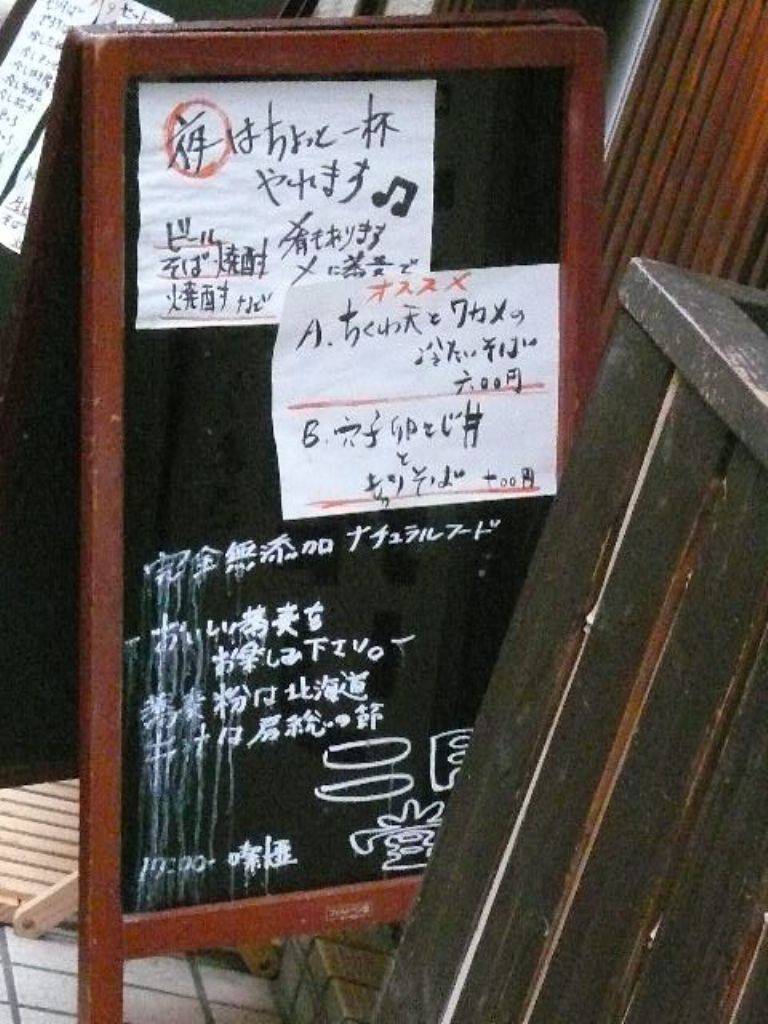 はちょっと一杯
やれます♫
ビール
そば焼酎
焼酎など
肴もあります
〆に蕎麦で
オススメ
A.ちくわ天とワカメの
冷たいそば
六00円
B.穴子卵とじ丼
と
もりそば 七00円
完全無添加 ナチュラルフード
おいしい蕎麦を
お楽しみ下さい。
蕎麦粉は北海道
汁は房総の節
17:00- 喫煙
堂